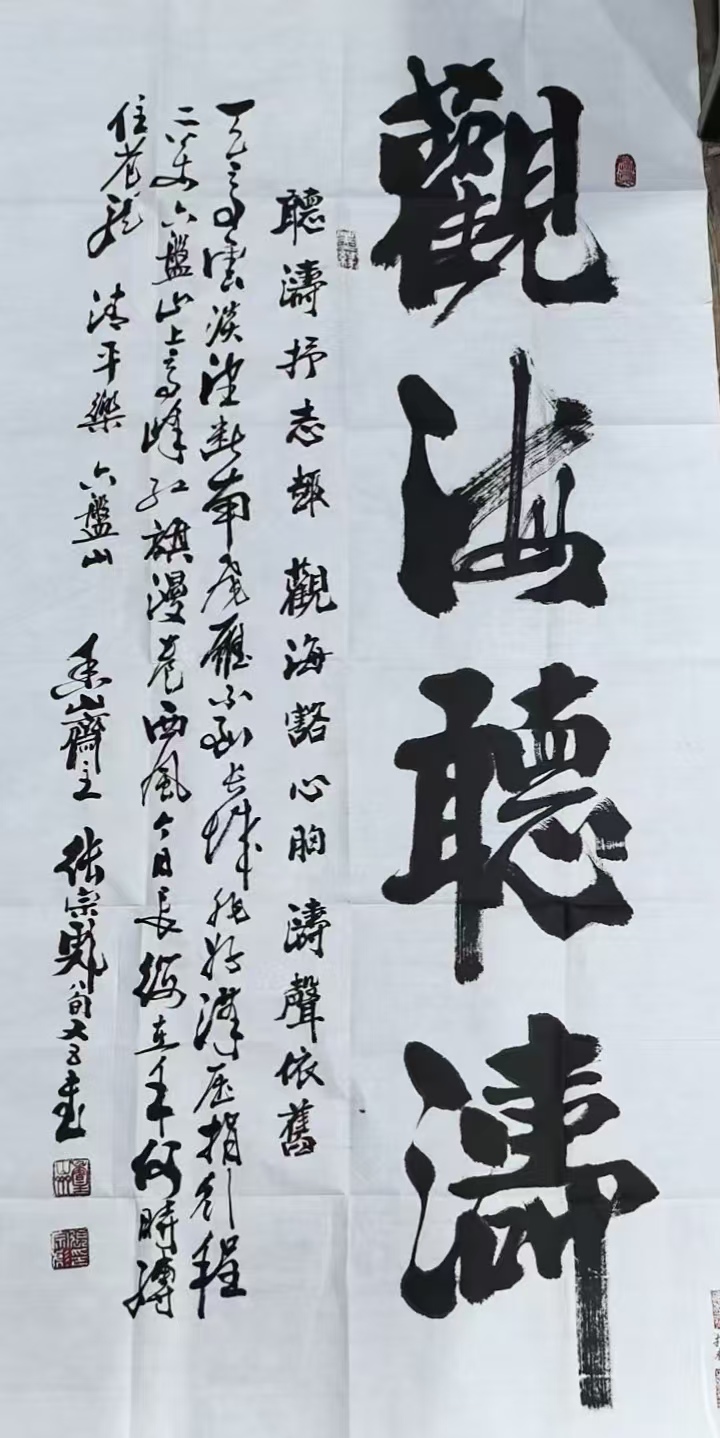 觀海聽濤
聽濤抒志趣 觀海豁心胸 濤聲依舊
天高雲淡望斷南飛雁不到長城非好漢屈指行程
二萬六盤山上高峰紅旗漫卷西風今日長纓在手何時縛
住蒼龍 清平樂 六盤山
山齋主 張宗彪